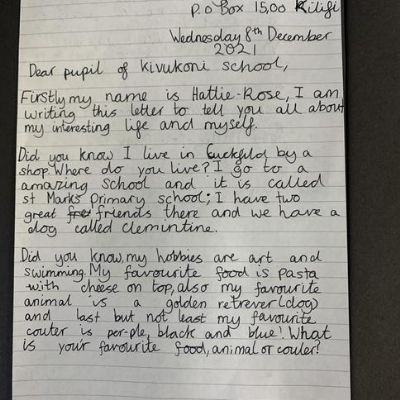 P.O Box 1500 Kilifi
Wednesday 8th December
2021
Dear pupil of Kivukoni school,
Firstly my name is Hattie-Rose, I am
writing this letter to tell you all about
my interesting life and myself.
Did you know I live in Cuckfild by a
shop. Where do you live? I go to a
amazing School and it is called
st Marks Primary school; I have two
great friends there and we have a
dog called clementine.
Did you know, my hobbies are art and
swimming. My favourite food is pasta
with cheese on top, also my favourite
animal is a golden retrever (dog)
and last but not least my favourite
couler is per-ple, black and blue! What
is your favourite food, animal or couler?